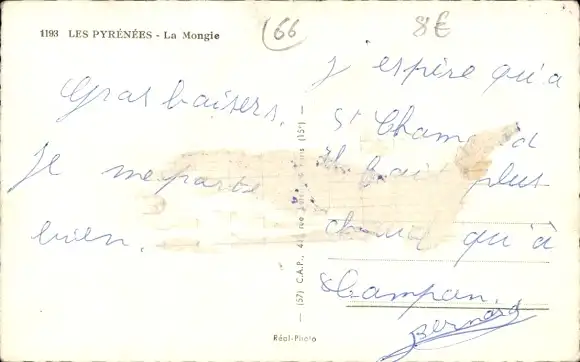 1193 LES PYRÉNÉES - La Mongie
66
8€
Gras baisers.
Je me parte
bien.
j'espère qu'a
St Cham d
plus
qu'à
Campan.
Bernard
(57) C.A.P., 41, rue (15e)
Réal-Photo